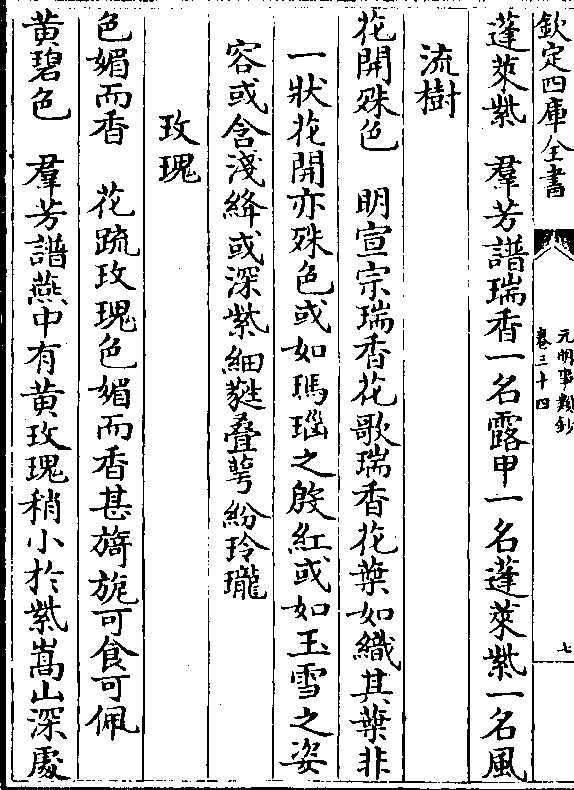 欽定四庫全書
元明事類鈔
卷三十四
七
蓬萊紫　羣芳譜瑞香一名露甲一名蓬萊紫一名風
流樹
花開殊色　明宣宗瑞香花歌瑞香花葉如織其葉非
一狀花開亦殊色或如瑪瑙之殷紅或如玉雪之姿
容或含淺絳或深紫細蕤叠萼紛玲瓏
玫瑰
色媚而香　花疏玫瑰色媚而香甚旖旎可食可佩
黄碧色　羣芳譜燕中有黄玫瑰稍小於紫嵩山深處